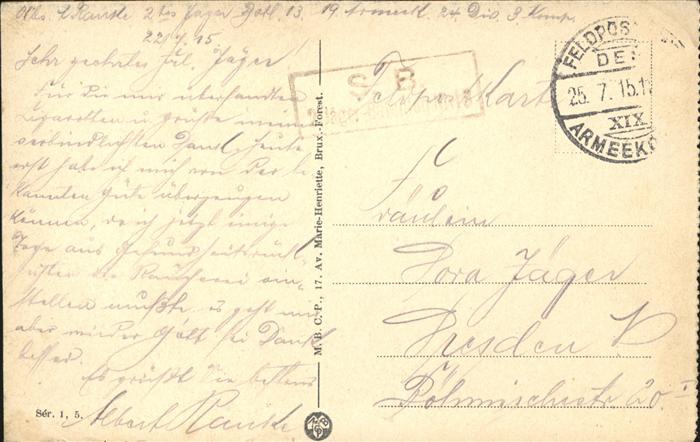 Abs. E. Ranske 2 tes Jäger Batl. 13. 19. Armeek. 24. Div. 3. Komp.
22. 7. 15
Sehr geehrtes Frl. Jäger!
Für die mir übersandten
Zigaretten u. Grüsse meinen
verbindlichsten Dank, heute
erst habe ich mich von der be-
kannten Güte überzeugen
können, da ich jetzt einige
Tage aus Gesundheitsrück-
sichten die Raucherei ein-
stellen mußte, es geht nun
aber wieder Gott sei Dank
besser.
Es grüßt Sie bestens
Albert Ranske
Sér. 1, 5.
M. B. C. P., 17. Av. Marie-Henriette, Brux.-Forest.
S. B.
Feldpostkarte
FELDPOS
DES
25. 7. 15. 1
XIX
ARMEEKO
Fräulein
Dora Jäger
Dresden N
Böhmischestr. 20 I